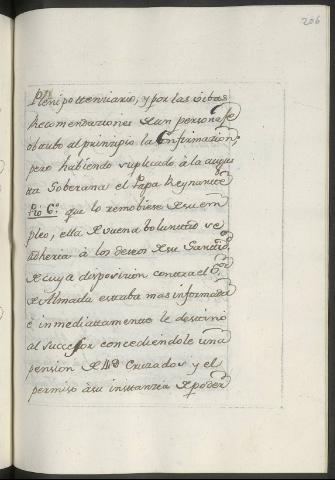 206
Plenipottenciario, y por las vibas
Recomendaziones de un personage
obtubo al principio la Confirmazion;
pero habiendo suplicado à la augus
tta Soberana el Papa Reynante
Pio 6.º que lo remobiese de su em
pleo, ella de buena boluntad se
adheria à los deseos de su Santid.
de cuya disposizion contra el
de Almada estaba mas informada
è inmediattamente le destinò
al succesor concediendole una
pension de Cruzados y el
permiso à su instanzia de poder